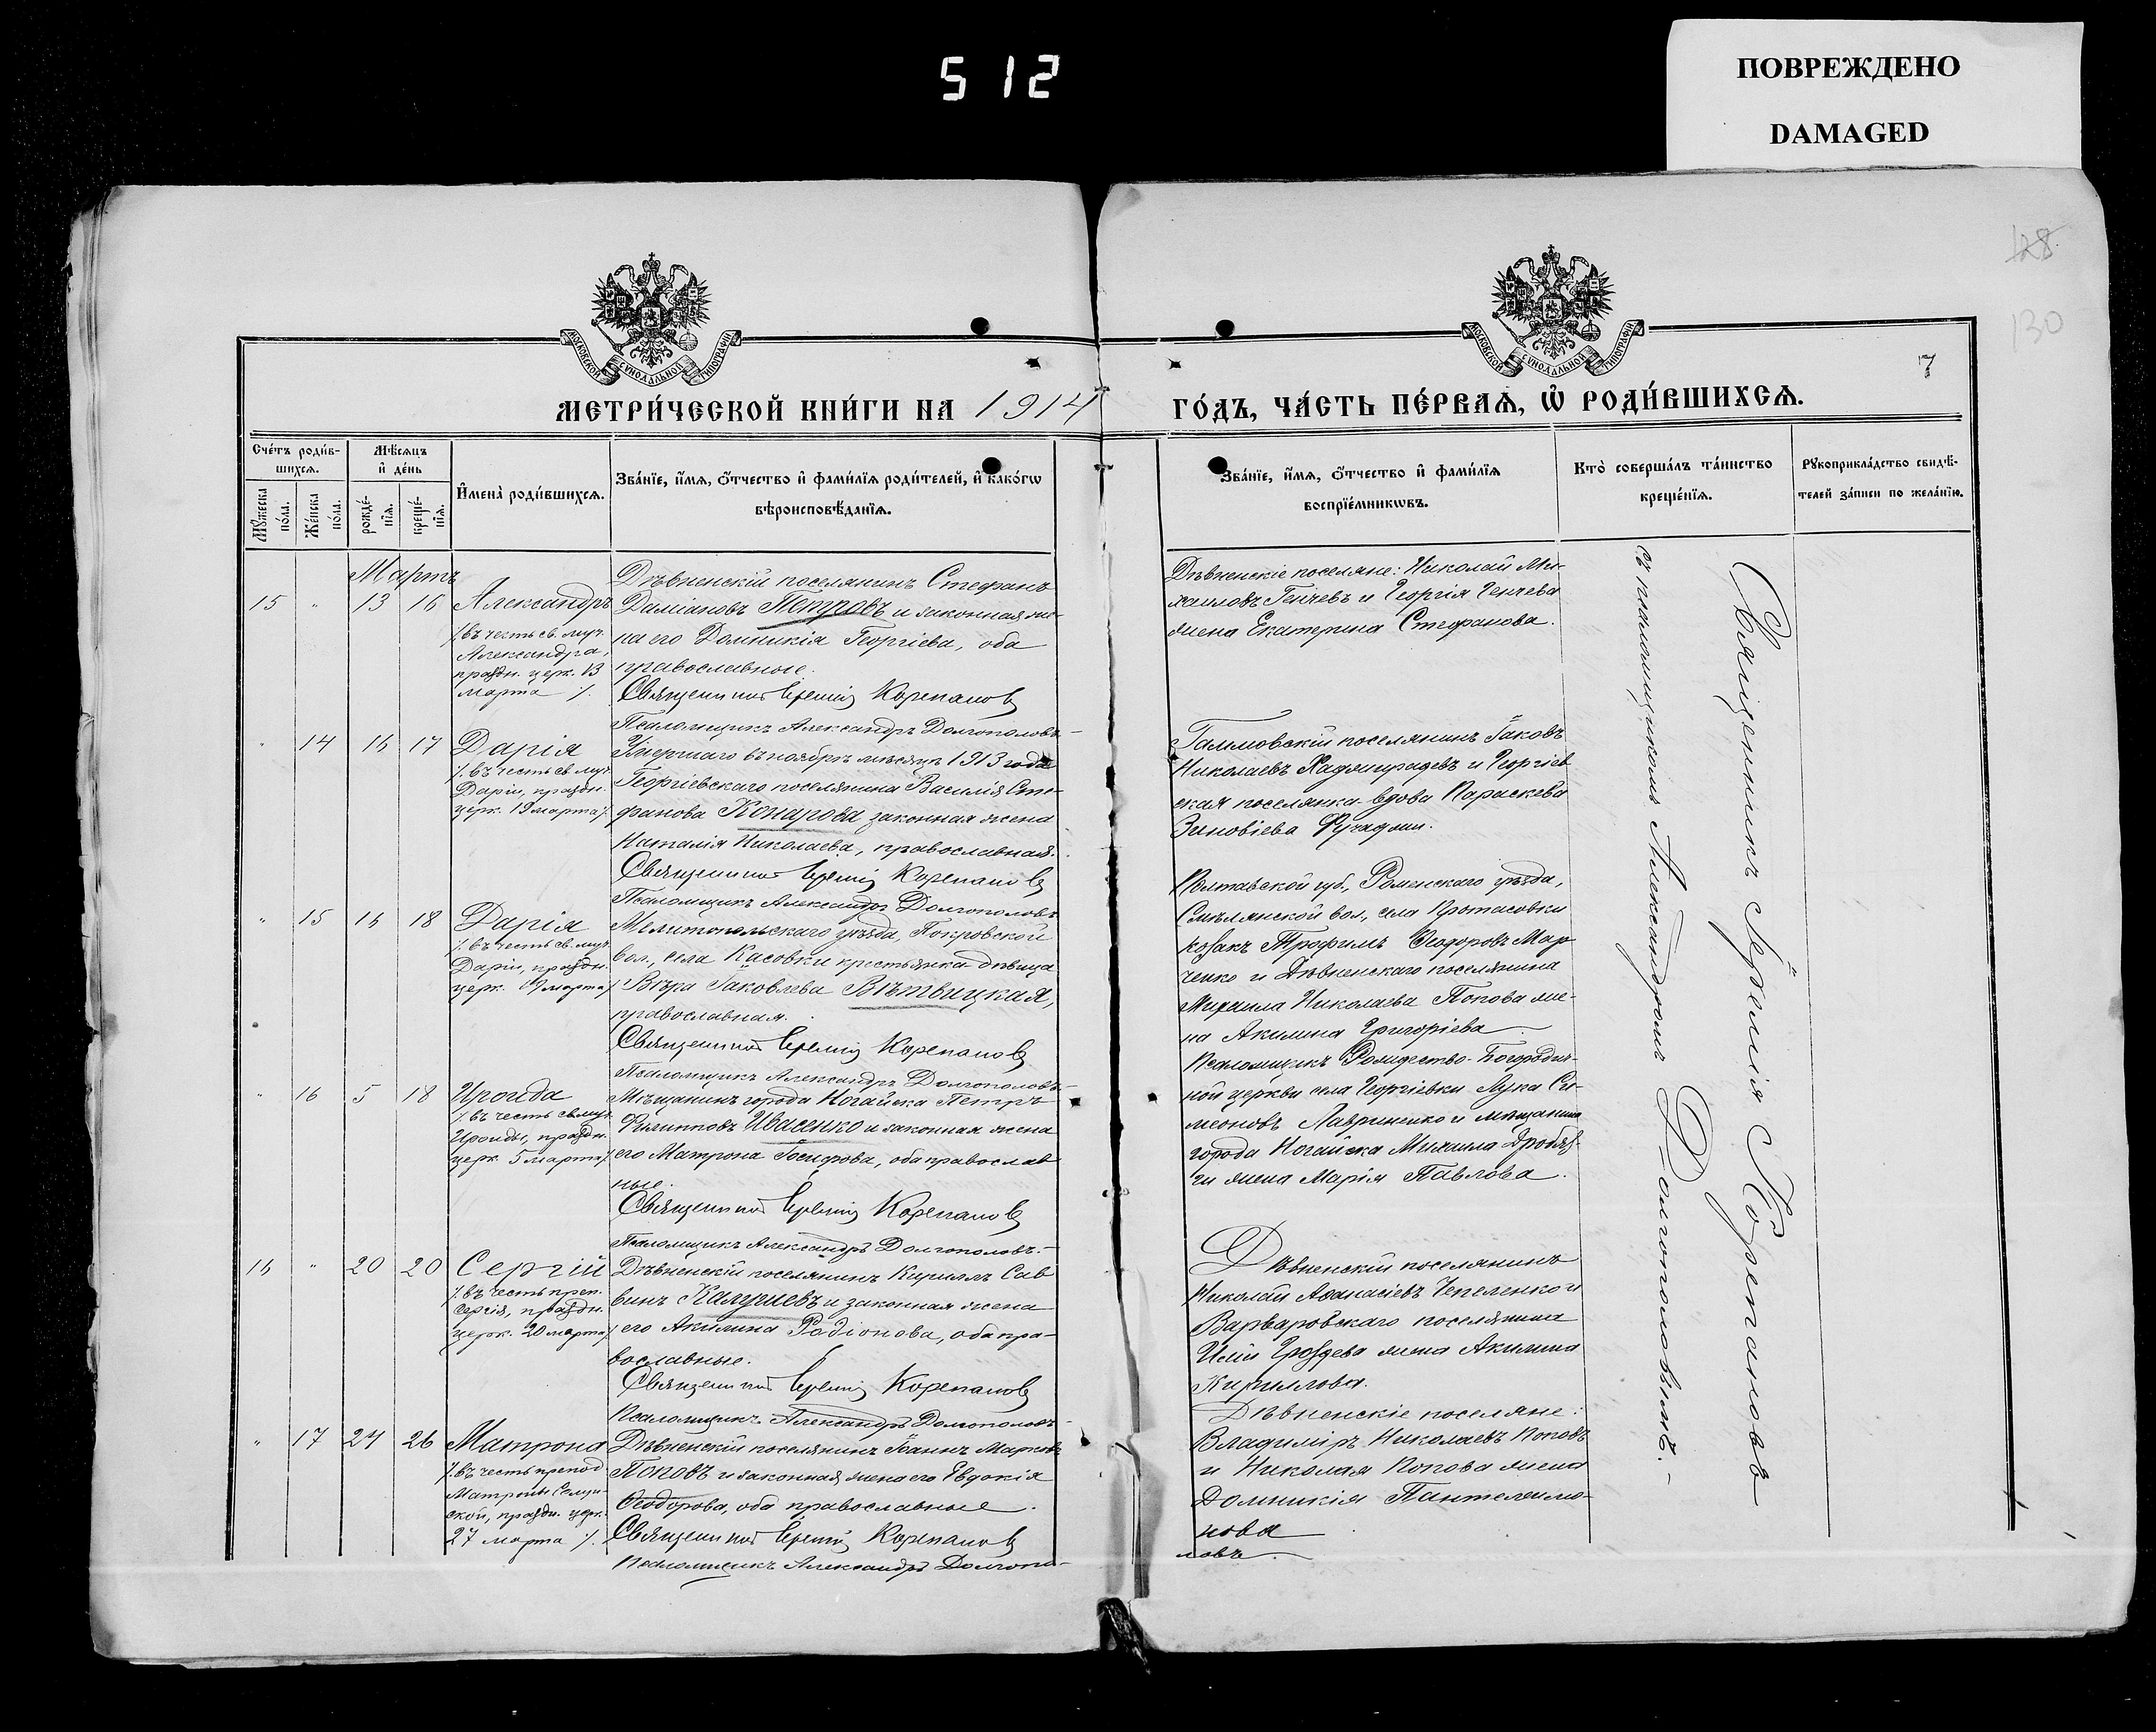 512
ПОВРЕЖДЕНО
DAMAGED
128
130
МОСКОВСКОЙ СѴНОДАЛЬНОЙ ТИПОГРАФІИ
МОСКОВСКОЙ СѴНОДАЛЬНОЙ ТИПОГРАФІИ
7
МЕТРИ́ЧЕСКОЙ КНИ́ГИ НА 1914
ГО́ДЪ, ЧА́СТЬ ПЕ́РВАѦ, Ѡ РОДИ́ВШИХСѦ.
Сче́тъ роди́в-
шихсѧ.
Мѣ́сѧцъ
и де́нь
Мꙋжеска
по́ла.
Же́нска
по́ла.
рожде́-
нїѧ.
креще́-
нїѧ.
Имена̀ роди́вшихсѧ.
Зва́нїе, и́мѧ, ѻ́тчество и фами́лїѧ роди́телей, и како́гѡ
вѣроисповѣ́данїѧ.
Зва́нїе, и́мѧ, ѻ́тчество и фами́лїѧ
воспрїе́мникѡвъ.
Кто̀ соверша́лъ та́инство
креще́нїѧ.
Рꙋкоприкла́дство свидѣ́-
телей за́писи по жела́нїю.
Мартъ
15 " 13 16 Александръ
/. въ честь св. муч.
Александра,
праздн. церк. 13
марта /.
Дѣвненскій поселянинъ Стефанъ
Даміановъ Петровъ и законная же-
на его Домникія Георгіева, оба
православные.
Священникъ Іеремія Корепановъ
Псаломщикъ Александръ Долгополовъ
Дѣвненскіе поселяне: Николай Ми-
хаиловъ Генчевъ и Георгія Генчева
жена Екатерина Стефанова.
" 14 16 17 Дарія
/. въ честь св. муч.
Даріи, праздн.
церк. 19 марта /.
Умершаго въ ноябрѣ мѣсяцѣ 1913 года
Георгіевскаго поселянина Василія Сте-
фанова законная жена
Наталія Николаева, православная.
Священникъ Іеремія Корепановъ
Псаломщикъ Александръ Долгополовъ
поселянинъ Іаковъ
Николаевъ и Георгіев
ская поселянка-вдова Параскева
Зиновіева
" 15 16 18 Дарія
/. въ честь св. муч.
Даріи, праздн.
церк. 19 марта /.
Мелитопольскаго уѣзда, Покровской
вол., села крестьянка дѣвица
Вѣра Іаковлева Вѣтвицкая,
православная.
Священникъ Іеремія Корепановъ
Псаломщикъ Александръ Долгополовъ
Полтавской губ., Роменскаго уѣзда,
Смѣлянской вол., села Протасовки
козакъ Трофимъ Ѳеодоровъ Мар
ченко и Дѣвненскаго поселянина
Михаила Николаева Попова же-
на Акилина Григоріева
" 16 5 18 Ироида
/. въ честь св. муч.
Ироиды, праздн.
церк. 5 марта /.
Мѣщанинъ города Ногайска Петръ
Филипповъ Ивасенко и законная жена
его Матрона Іосифова, оба православ
ные.
Священникъ Іеремія Корепановъ
Псаломщикъ Александръ Долгополовъ.
Псаломщикъ Рождество-Богородич-
ной церкви села Георгіевки Лука Си-
меоновъ Лавриненко и мѣщанина
города Ногайска Михаила Дробяз-
ги жена Марія Павлова.
16 " 20 20 Сергій
/. въ честь преп.
Сергія, праздн.
церк. 20 марта /.
Дѣвненскій поселянинъ Кириллъ Сав
винъ и законная жена
его Акилина Родіонова, оба пра-
вославные.
Священникъ Іеремія Корепановъ
Псаломщикъ Александръ Долгополовъ
Дѣвненскій поселянинъ
Николай Аѳанасіевъ Чепеленко и
Варваровскаго поселянина
Иліи Гроздева жена Акилина
Кириллова.
" 17 24 26 Матрона
/. въ честь препод.
Матроны Солун-
ской, праздн. церк.
27 марта /.
Дѣвненскій поселянинъ Іоаннъ Марковъ
Поповъ и законная жена его Евдокія
Ѳеодорова, оба православные.
Священникъ Іеремія Корепановъ
Псаломщикъ Александръ Долгопо-
ловъ.
Дѣвненскіе поселяне:
Владиміръ Николаевъ Поповъ
и Николая Попова жена
Домникія Пантелеимо-
нова
Священникъ Іеремія Корепановъ
съ псаломщикомъ Александромъ Долгополовымъ.